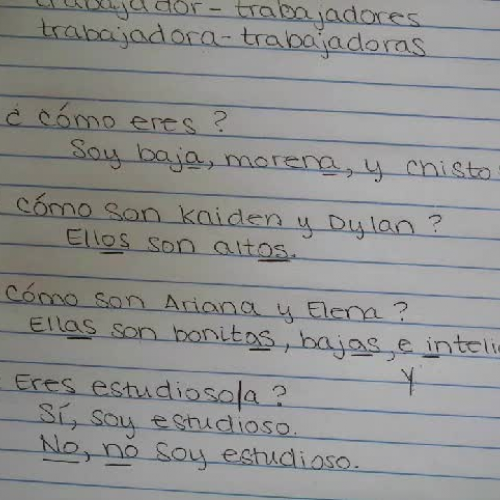 trabajador - trabajadores
trabajadora - trabajadoras
¿ cómo eres ?
Soy baja, morena, y
cómo son Kaiden y Dylan ?
Ellos son altos.
cómo son Ariana y Elena ?
Ellas son bonitas, bajas, e
y
Eres estudioso/a ?
Sí, soy estudioso.
No, no soy estudioso.